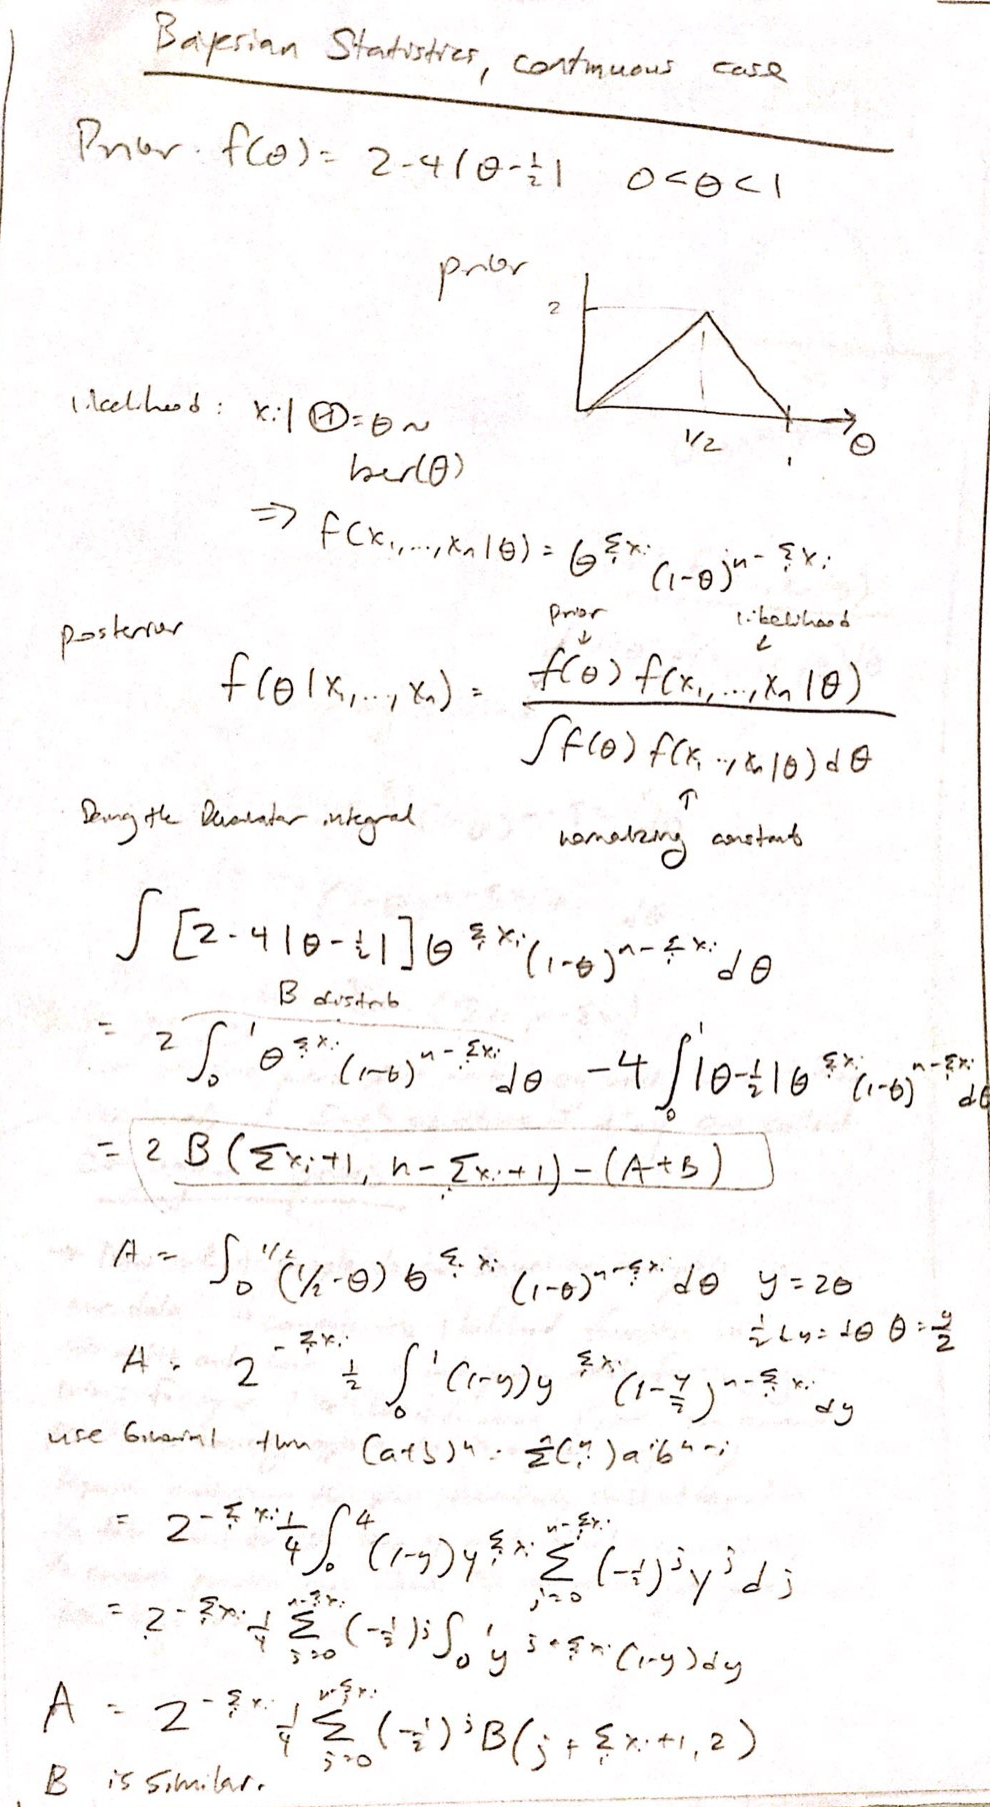 Bayesian Statistics, continuous case
Prior. f(θ) = 2-4|θ-½| 0<θ<1
prior
2
1/2 1 θ
likelihood: xi|Θ=θ ~
ber(θ)
⇒ f(x₁,...,xₙ|θ) = θ^Σxi (1-θ)^n-Σxi
posterior
prior ↓ likelihood ↓
f(θ|x₁,...,xₙ) = f(θ) f(x₁,...,xₙ|θ) / ∫f(θ) f(x₁..,xₙ|θ)dθ
↑
Doing the integral
normalizing constant
∫[2-4|θ-½|]θ^Σxi (1-θ)^n-Σxi dθ
B distrib
= 2∫₀¹ θ^Σxi (1-θ)^n-Σxi dθ - 4∫₀¹|θ-½|θ^Σxi (1-θ)^n-Σxi dθ
= 2 B(Σxi+1, n-Σxi+1) - (A+B)
A = ∫₀^1/2 (½-θ) θ^Σxi (1-θ)^n-Σxi dθ y = 2θ
½dy = dθ θ = y/2
A = 2^-Σxi ½ ∫₀¹ (1-y)y^Σxi (1-y/2)^n-Σxi dy
use thm (a+b)^n = Σ(n i)a^i b^n-i
= 2^-Σxi ¼ ∫₀⁴ (1-y)y^Σxi Σ_j=0^n-Σxi (-½)^j y^j dj
= 2^-Σxi ¼ Σ_j=0^n-Σxi (-½)^j ∫₀¹ y^j+Σxi (1-y)dy
A = 2^-Σxi ¼ Σ_j=0^n-Σxi (-½)^j B(j+Σxi+1, 2)
B is similar.